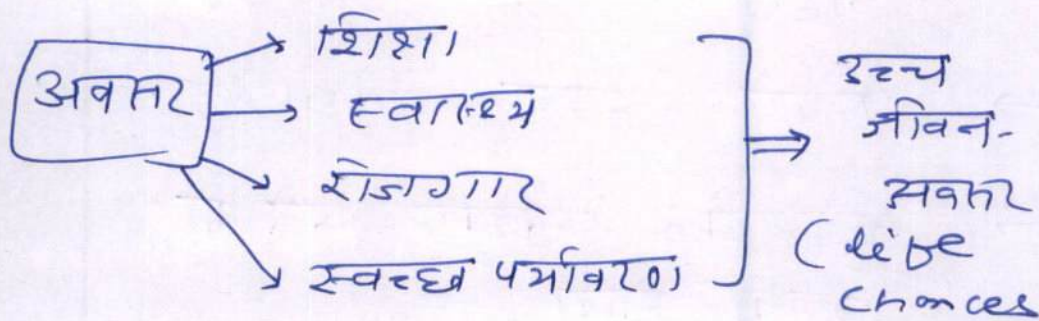 अवसर
शिक्षा
स्वास्थ्य
रोजगार
स्वच्छ पर्यावरण
उच्च
जीवन-
अवसर
(life
chances